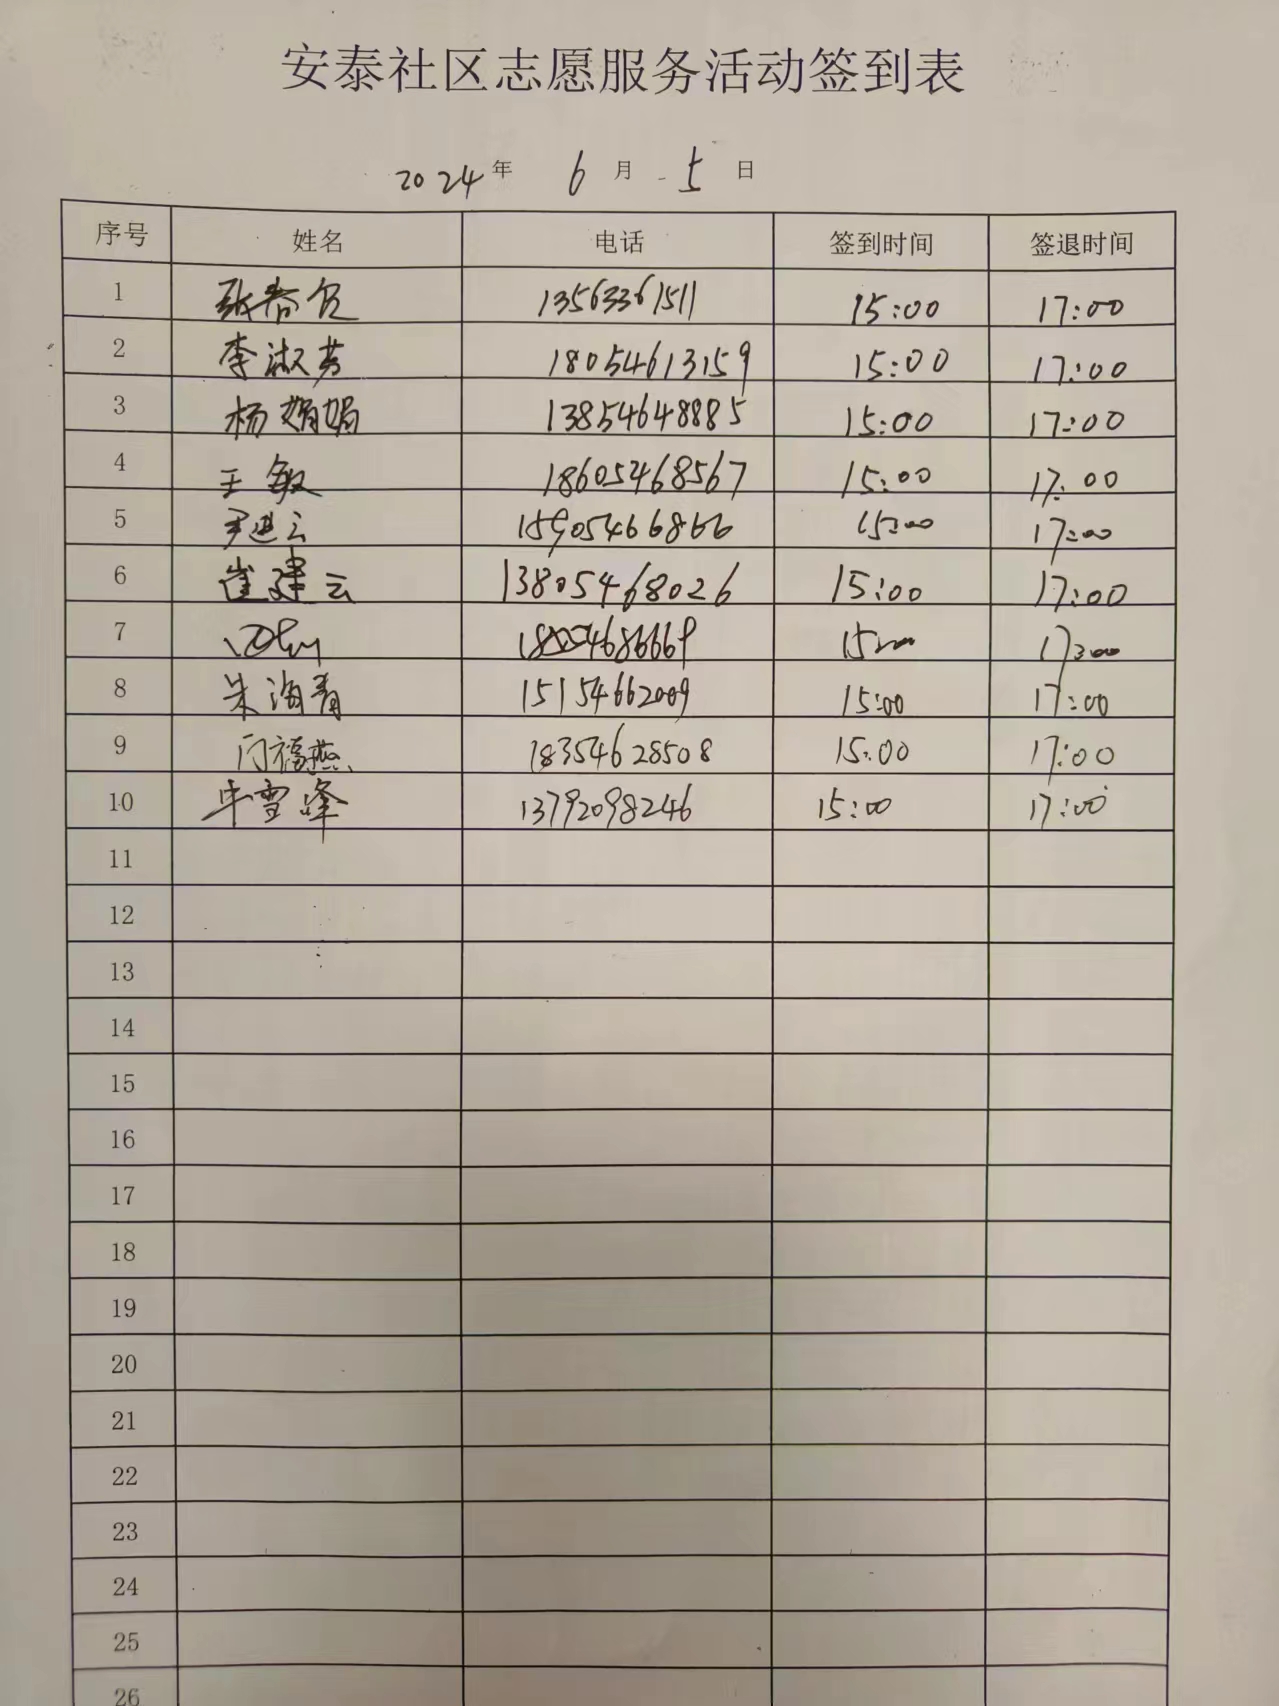 安泰社区志愿服务活动签到表
2024年 6月 5日
序号 姓名 电话 签到时间 签退时间
1 张春贞 13563361511 15:00 17:00
2 李淑芳 18054613159 15:00 17:00
3 杨娟娟 13854648885 15:00 17:00
4 王敏 18605468567 15:00 17:00
5 尹进云 15905466866 15:00 17:00
6 崔建云 13805468026 15:00 17:00
7 15:00 17:00
8 朱海青 15154662009 15:00 17:00
9 闫福燕 18354628508 15:00 17:00
10 牛雪峰 13792098246 15:00 17:00
11
12
13
14
15
16
17
18
19
20
21
22
23
24
25
26